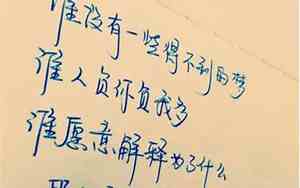 谁没有一些得不到的梦
谁人负你负我多
谁愿意解释为了什么